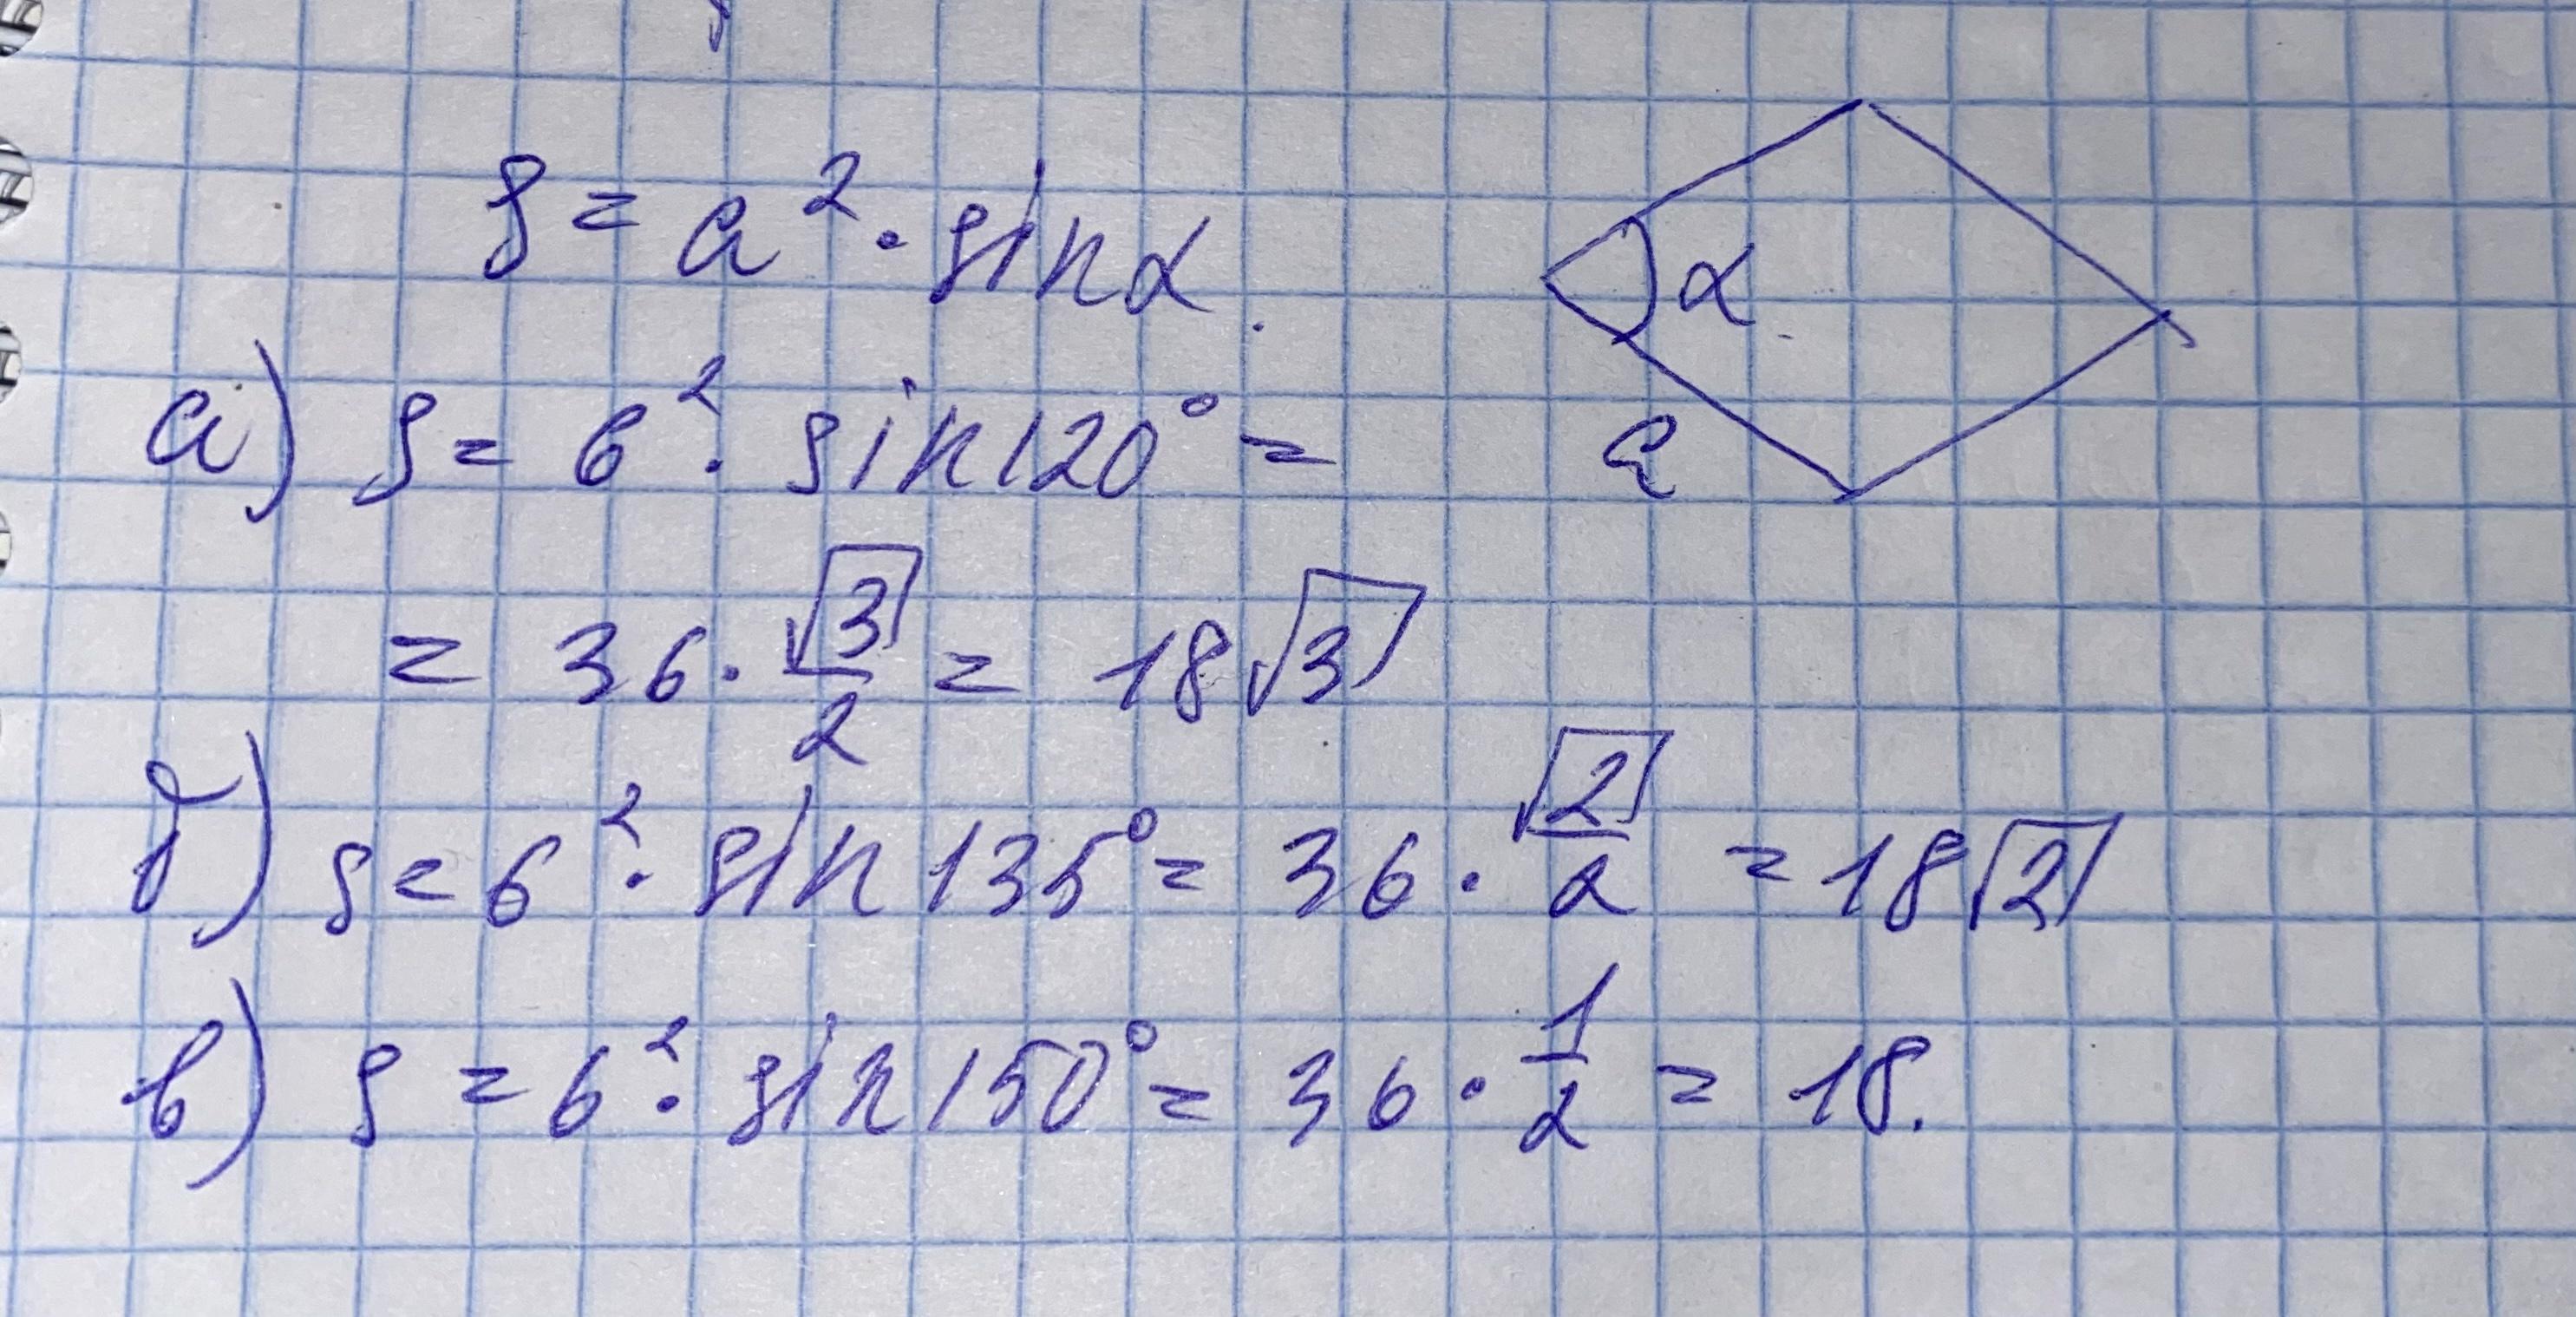 S = a² · sinα.
α
а) S = 6² · sin120° =
a
= 36 · √3/2 = 18√3
б) S = 6² · sin 135° = 36 · √2/2 = 18√2
в) S = 6² · sin 150° = 36 · 1/2 = 18.